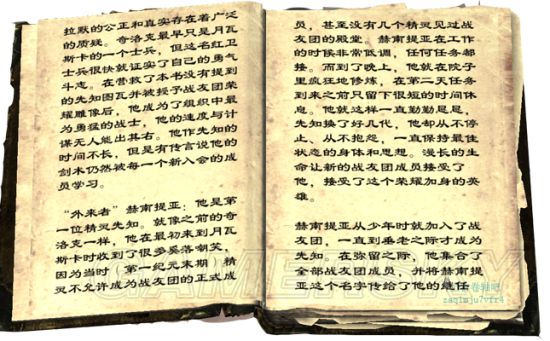 拉默的公正和真实存在着广泛
的质疑。奇洛克最早只是月瓦
斯卡的一个士兵，但这名红卫
士兵很快就证实了自己的勇气
斗志。在营救了本书没有提到
的先知图瓦并被授予战友团荣
耀雕像后，他成为了组织中最
为勇猛的战士，他的速度与计
谋无人能出其右。他作先知的
时间不长，但是有传言说他的
剑术仍然被每一个新入会的成
员学习。
“外来者”赫南提亚：他是第
一位精灵先知。就像之前的奇
洛克一样，他在最初来到月瓦
斯卡时收到了很多奚落朝笑，
因为当时 第一纪元末期 精
灵不允许成为战友团的正式成
员，甚至没有几个精灵见过战
友团的殿堂。赫南提亚在工作
的时侯非常低调，任何任务都
接。而到了晚上，他就在院子
里疯狂地修炼，在第二天任务
到来之前只留下很短的时间休
息。他就这样一直勤勤恳恳，
先知换了好几代，他却从不停
止、从不抱怨，一直保持最佳
状态的身体和思想。漫长的生
命让新的战友团成员接受了
他，接受了这个荣耀加身的英
雄。
赫南提亚从少年时就加入了战
友团，一直到垂老之际才成为
先知 在弥留之际，他集合了
全部战友团成员，并将赫南提
亚这个名字传给了他的继任
GAMERSKY
卷轴吧
zaq1mju7vfr4